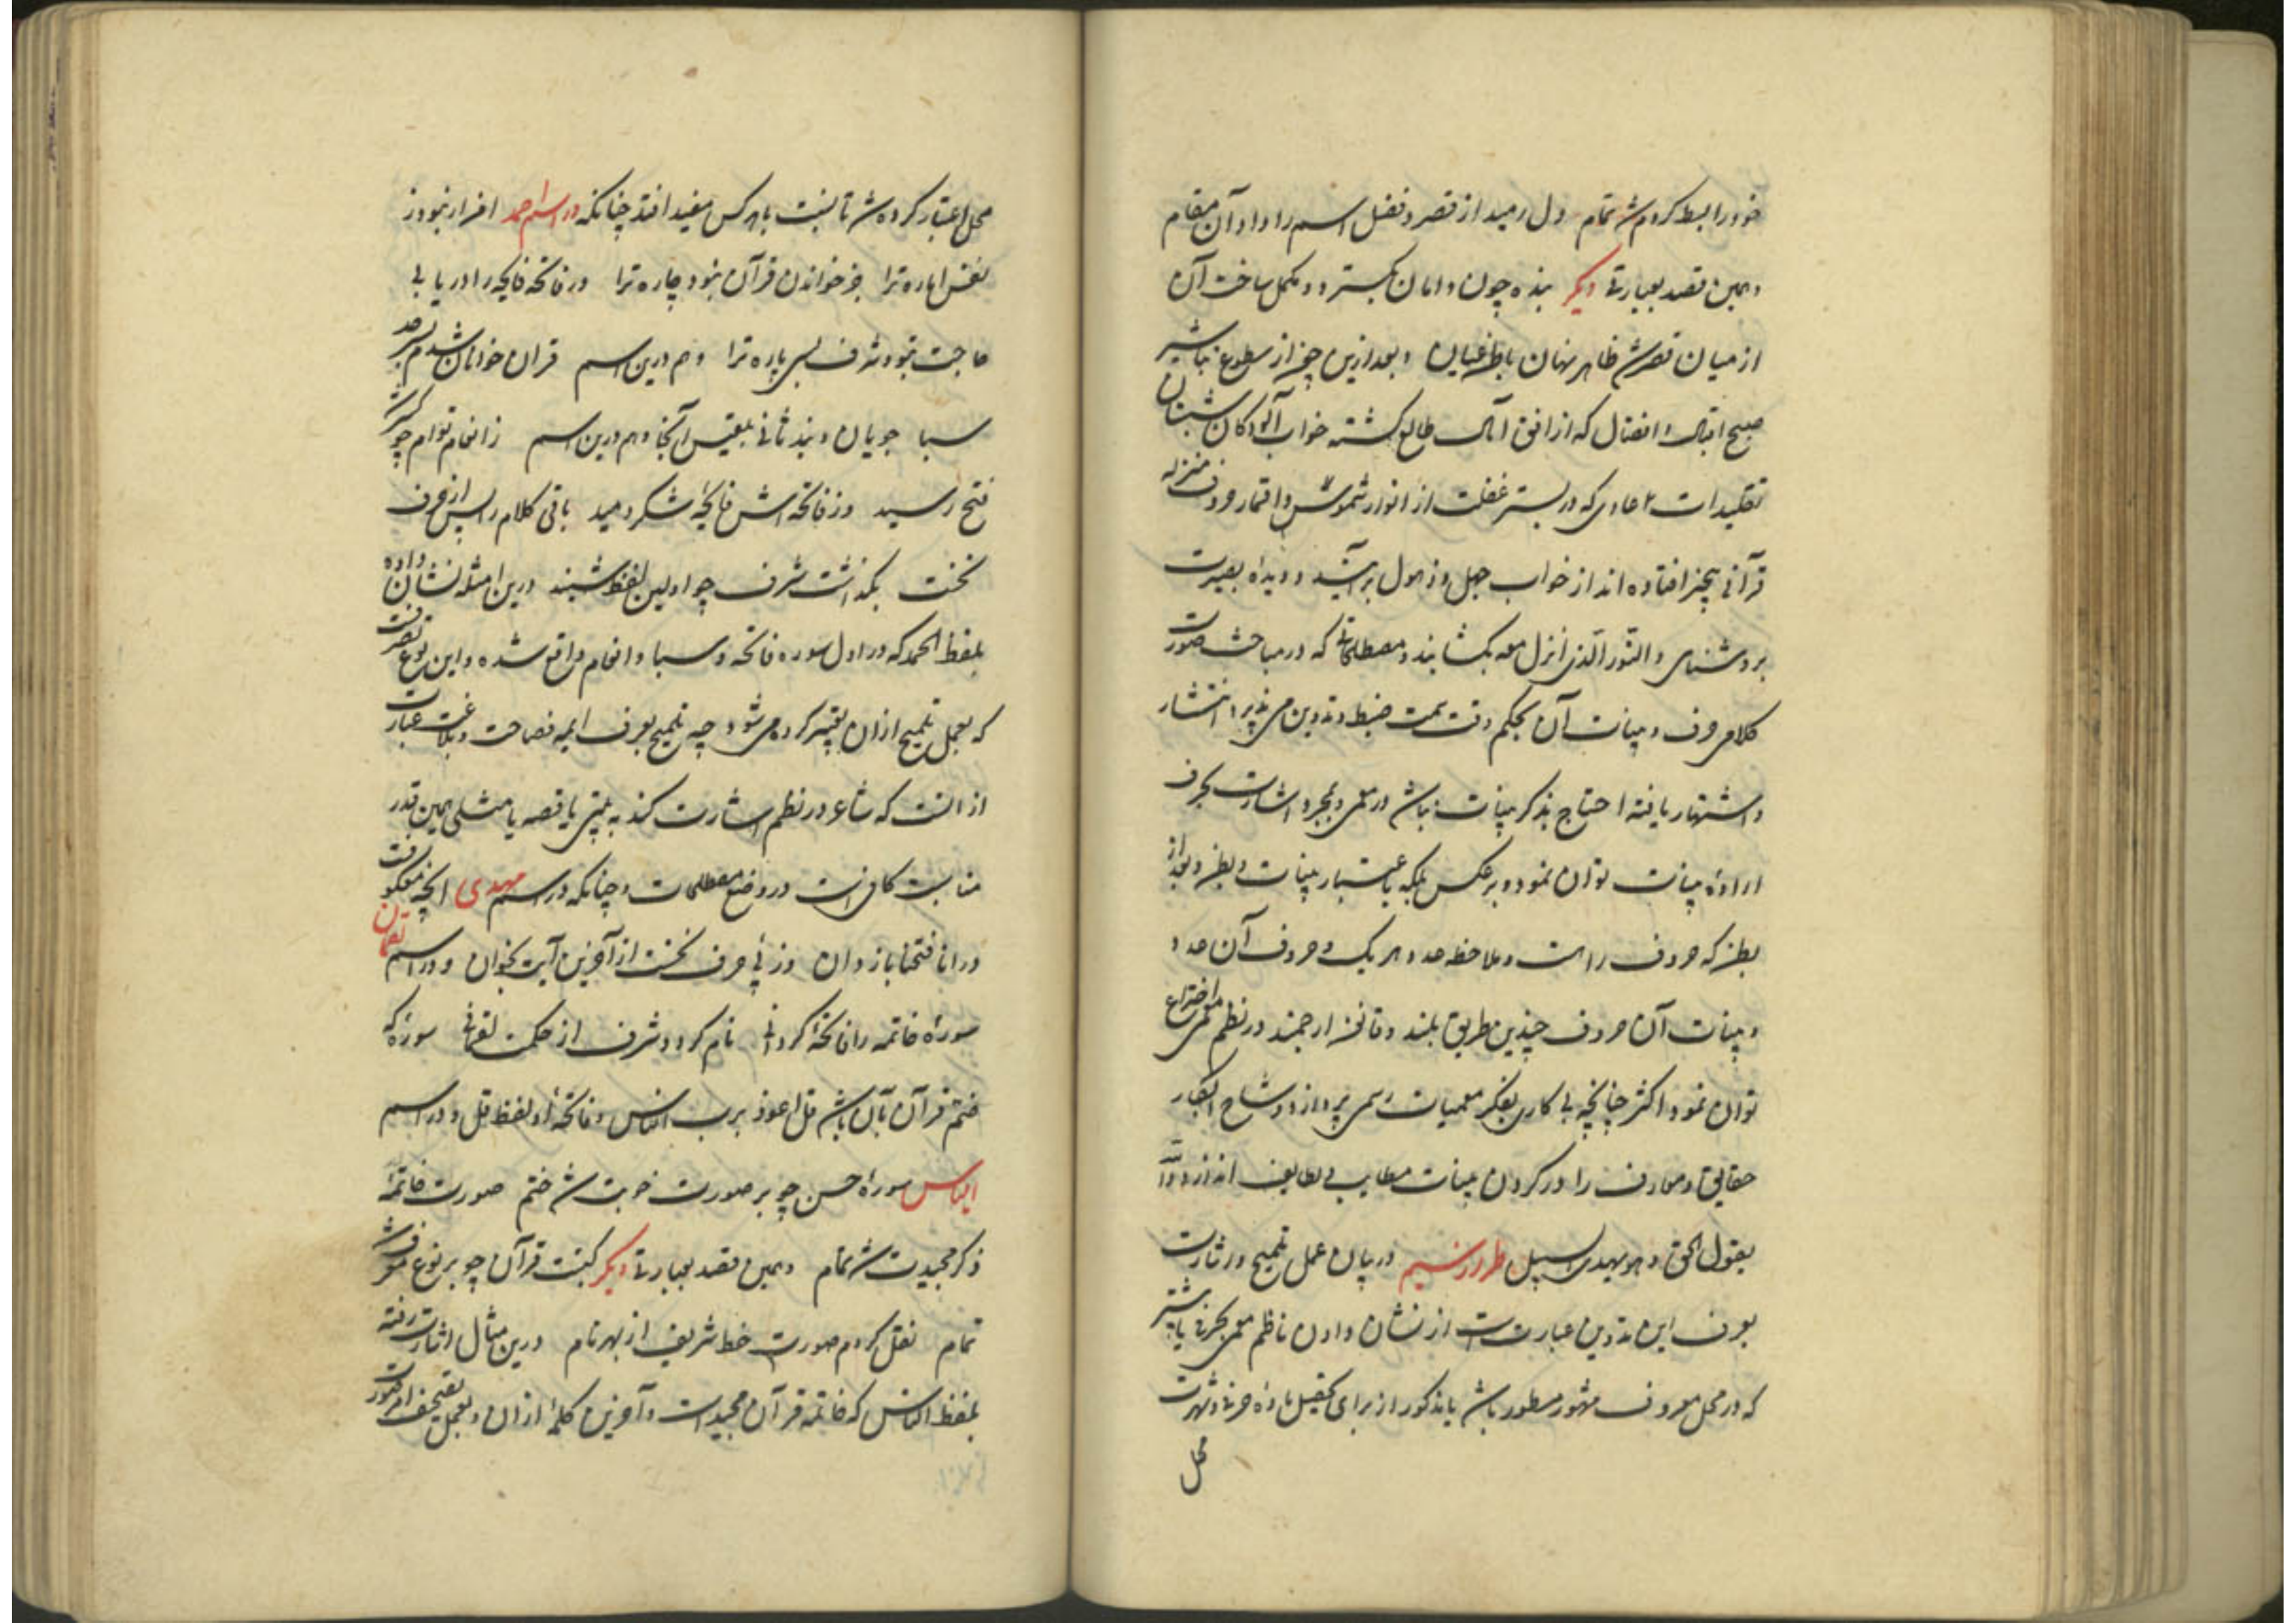 خود را بسط کردم شد تمام دل رمید از قصر و فضل اسم را داد آن مقام
و همین قصد بعبارتی دیگر بنده چون دامان بگسترد و مکمل ساخت آن
از میان قصرش ظاهر نهان باطن عیان و بعد ازین چون از سطوع تباشیر
صبح اقبال و افضال که از افق آمال طالع گشته خواب آلودگان شبستان
تقلیدات عادی که در بستر غفلت از انوار شموس و اقمار حروف منزله
قرآنی بیخبر افتاده اند از خواب جهل و ذهول برآیند و دیده بصیرت
بروشنای و النور الذی انزل معه بکشایند و مصطلحاتی که در مباحث صورت
کلامی حروف و بینات آن بحکم وقت سمت ضبط و تدوین می پذیرد انتشار
و اشتهار یافته احتیاج بذکر بینات نباشد در معمی و بمجرد اشارت بحرف
اراده بینات توان نمود و برعکس بلکه باعتبار بینات و بطن و بعد از
بطن که حروف راست و ملاحظه عدد هر یک و حروف آن عدد
و بینات آن حروف چندین طریق بلند و قانون ارجمند در نظم معمی اختراع
توان نمود اکثر چنانچه بی کاری بفکر معمیات رسمی پردازد و شاح ابکار
حقایق و معارف را در گردن بینات مطایب و لطایف اندازد و الله
یقول الحق و هو یهدی السبیل طرازنسیم در بیان عمل تلمیح و اشارت
بعرف این تدوین عبارتست از نشان دادن ناظم معمی بحرفی یا بیشتر
که در محل معروف مشهور مسطور باشد یا مذکور از برای تحصیل ماده حرفی و شهرت
محل
محل اعتبار کرده شد تا نسبت باهر کس مفید افتد چنانکه در اسم احمد افرار نبود ز
نفس اماره ترا جز خواندن قرآن نبود چاره ترا در فاتحه فاتحه را دریابی
حاجت نبود شرف بسی پاره ترا و هم درین اسم قرآن خوانان شدم بسرحد
سبا جویان و بند ثانی بلقیس آنجا و هم درین اسم ز انعام توام چو
فتح رسید وز فاتحه اش فاتحه شکر دمید باقی کلام را پس از حرف
نخست بگذاشت شرف چو اولین لفظ شنید درین امثله نشان داده
بلفظ الحمد که در اول سوره فاتحه و سبا و انعام واقع شده و این نوع تصرفیست
که بعمل تلمیح ازان تعبیر کرده می شود چه تلمیح بعرف ایمه فصاحت و بلاغت عبارت
از انست که شاعر در نظم اشارت کند به بیتی یا قصه یا مثلی همین قدر
مناسبت کافی است در وضع مصطلحات و چنانکه در اسم مهدی انچه معکوفت
در انا فتحنا باز دان وز پی حرف نخست از آخرین آیت بخوان و در اسم نعمان
سورهٔ خاتمه را فاتحهٔ گردانی نام گردد شرف از حکمت لقمانی سورهٔ که
ختم قرآن بآن باشد قل اعوذ برب الناس و فاتحهٔ او لفظ قل و در اسم
الیاس سورهٔ حسن چو بر صورت خوبت شد ختم صورت خاتمهٔ
ذکر مجیدت شد تمام و همین قصد بعبارتی دیگر کتبت قرآن چو بر نوع
تمام نقل کردم صورت خط شریف از بهر نام درین مثال اشارت رفته
بلفظ الناس که خاتمه قرآن مجیدست و آخرین کلمهٔ ازان و بعمل تصحیف ازو صورت